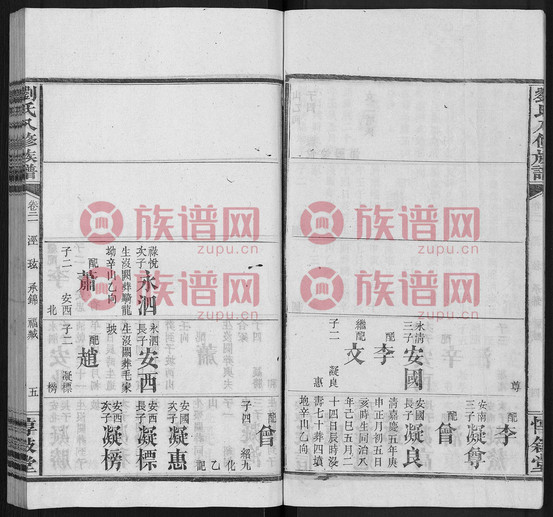 劉氏八修族譜
配
李
尊
安南
三子
凝尊
配
曾
永清
三子
安國
配
李
繼配
文
子二
凝良
惠
安國
長子
凝良
清嘉慶五年庚
申正月初五日
亥時生同治八
年己巳五月二
十四日長時沒
壽七十葬四塡
地辛山乙向
配
曾
子四
紹九
化
乙
配
安國
次子
凝惠
祿悅
次子
永泗
生沒闕葬騎龍
坳辛山乙向
配
蕭
子二
安西
北
永泗
長子
安西
生沒闕葬毛家
坡
配
趙
子二
凝標
榜
安西
長子
凝標
安西
次子
凝榜
劉氏八修族譜
卷二
五
惇敍堂
族谱网
zupu.cn
族谱网
zupu.cn
族谱网
zupu.cn
族谱网
zupu.cn